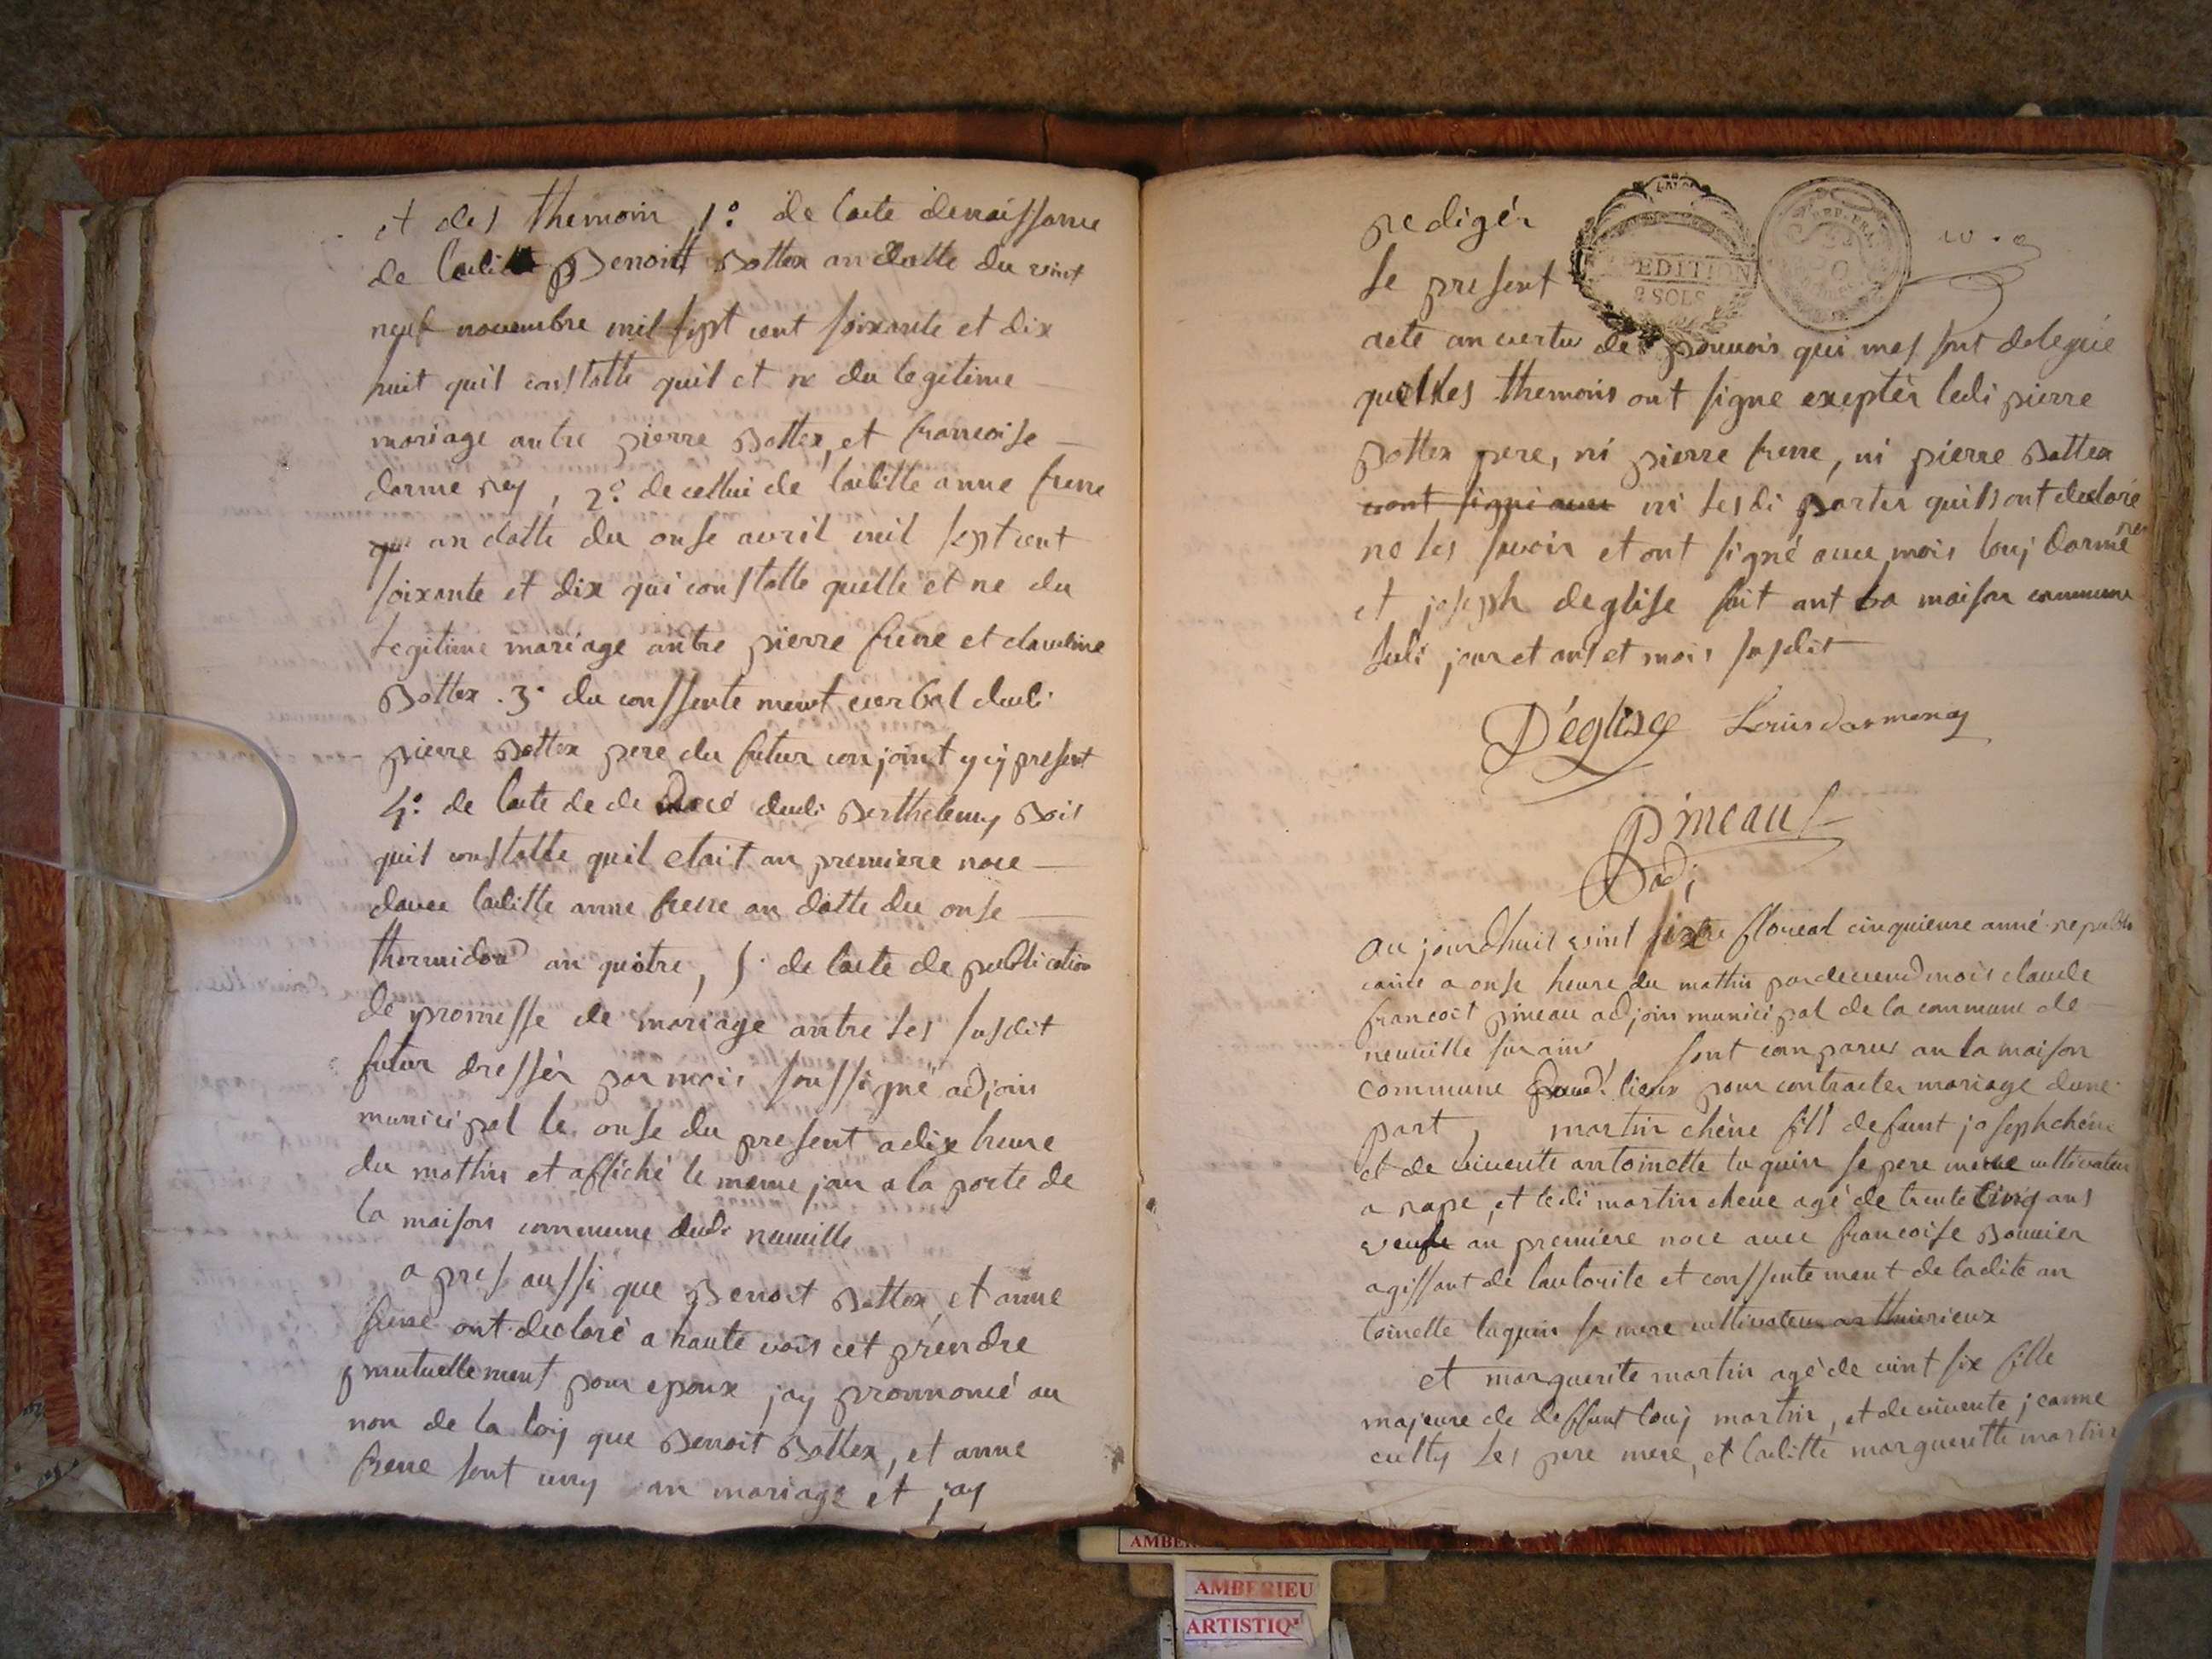 et des themoin 1.° de lacte denaissance
de laditte Benoit Bottex an datte du vint
neuf novembre mil sept cent soixante et dix
huit quil constatte quil et ne du legitime
mariage antre pierre Bottex, et francoise
darme ney, 2.° de cellui de laditte anne frene
an datte du onse avril mil sept cent
soixante et dix qui constatte quelle et ne du
legitime mariage antre pierre frene et claudine
Bottex . 3.° du conssente ment verbal dudi
pierre Bottex pere du futur conjoint y cy present
4.° de lacte de de dudi Berthelemy Bois
quil constatte quil etait an premiere noce
davec laditte anne frene an datte du onse
thermidor an quatre, 5. de lacte de publication
de promesse de mariage antre les susdit
futur dressér par mois soussigné adjoin
municipal le onse du present a dix heure
du mathin et affiché le meme jour a la porte de
la maison commune dudi neuville
apres aussi que Benoit Bottex, et anne
frene ont declaré a haute vois cet préndre
mutuellement pour epoux jay pronnoncé au
non de la loy que Benoit Bottex, et anne
frene sont uny an mariage et jay
redigér
le present
EXPEDITION
2 SOLS
REP. FRA.
acte an vertu des pouvoir qui mes sont delegué
quelles themoins ont signe exeptér ledi pierre
Bottex pere, ni pierre frene, ni pierre Bottex
vont signé avec ni lesdi parter quils ont declaré
ne les savoir et ont signé avec mois louj darme ney
et joseph deglise fait ant la maison commune
ledi jour et ans et mois susdit
D'eglise Louis darmeney
Pineau
adj
au jourdhuit vint sixte floreal cinquieme anné republi
caine a onse heure du mathin par devend mois claude
francoit pineau adjoin municipal de la commune de
neuville sur ains, sont comparus an la maison
commune dud. lieux pour contracter mariage dune
part, martin chêne fils defaunt joseph chéne
et de vivente antoinette tuquin le pere mere cultivateur
a rape, et ledi martin chene agé de trente cinq ans
veufe an premiére noce avec francoise Bouvier
agissant de lautorite et conssentement de ladite an
toinette luquin sa mere cultivateur a thuirieux
et marguerite martin agé de vint six fille
majeure de deffunt louj martin, et de vivente jeanne
cutty les pere mere, et laditte margueritte martin
AMBERIEU
ARTISTIQ